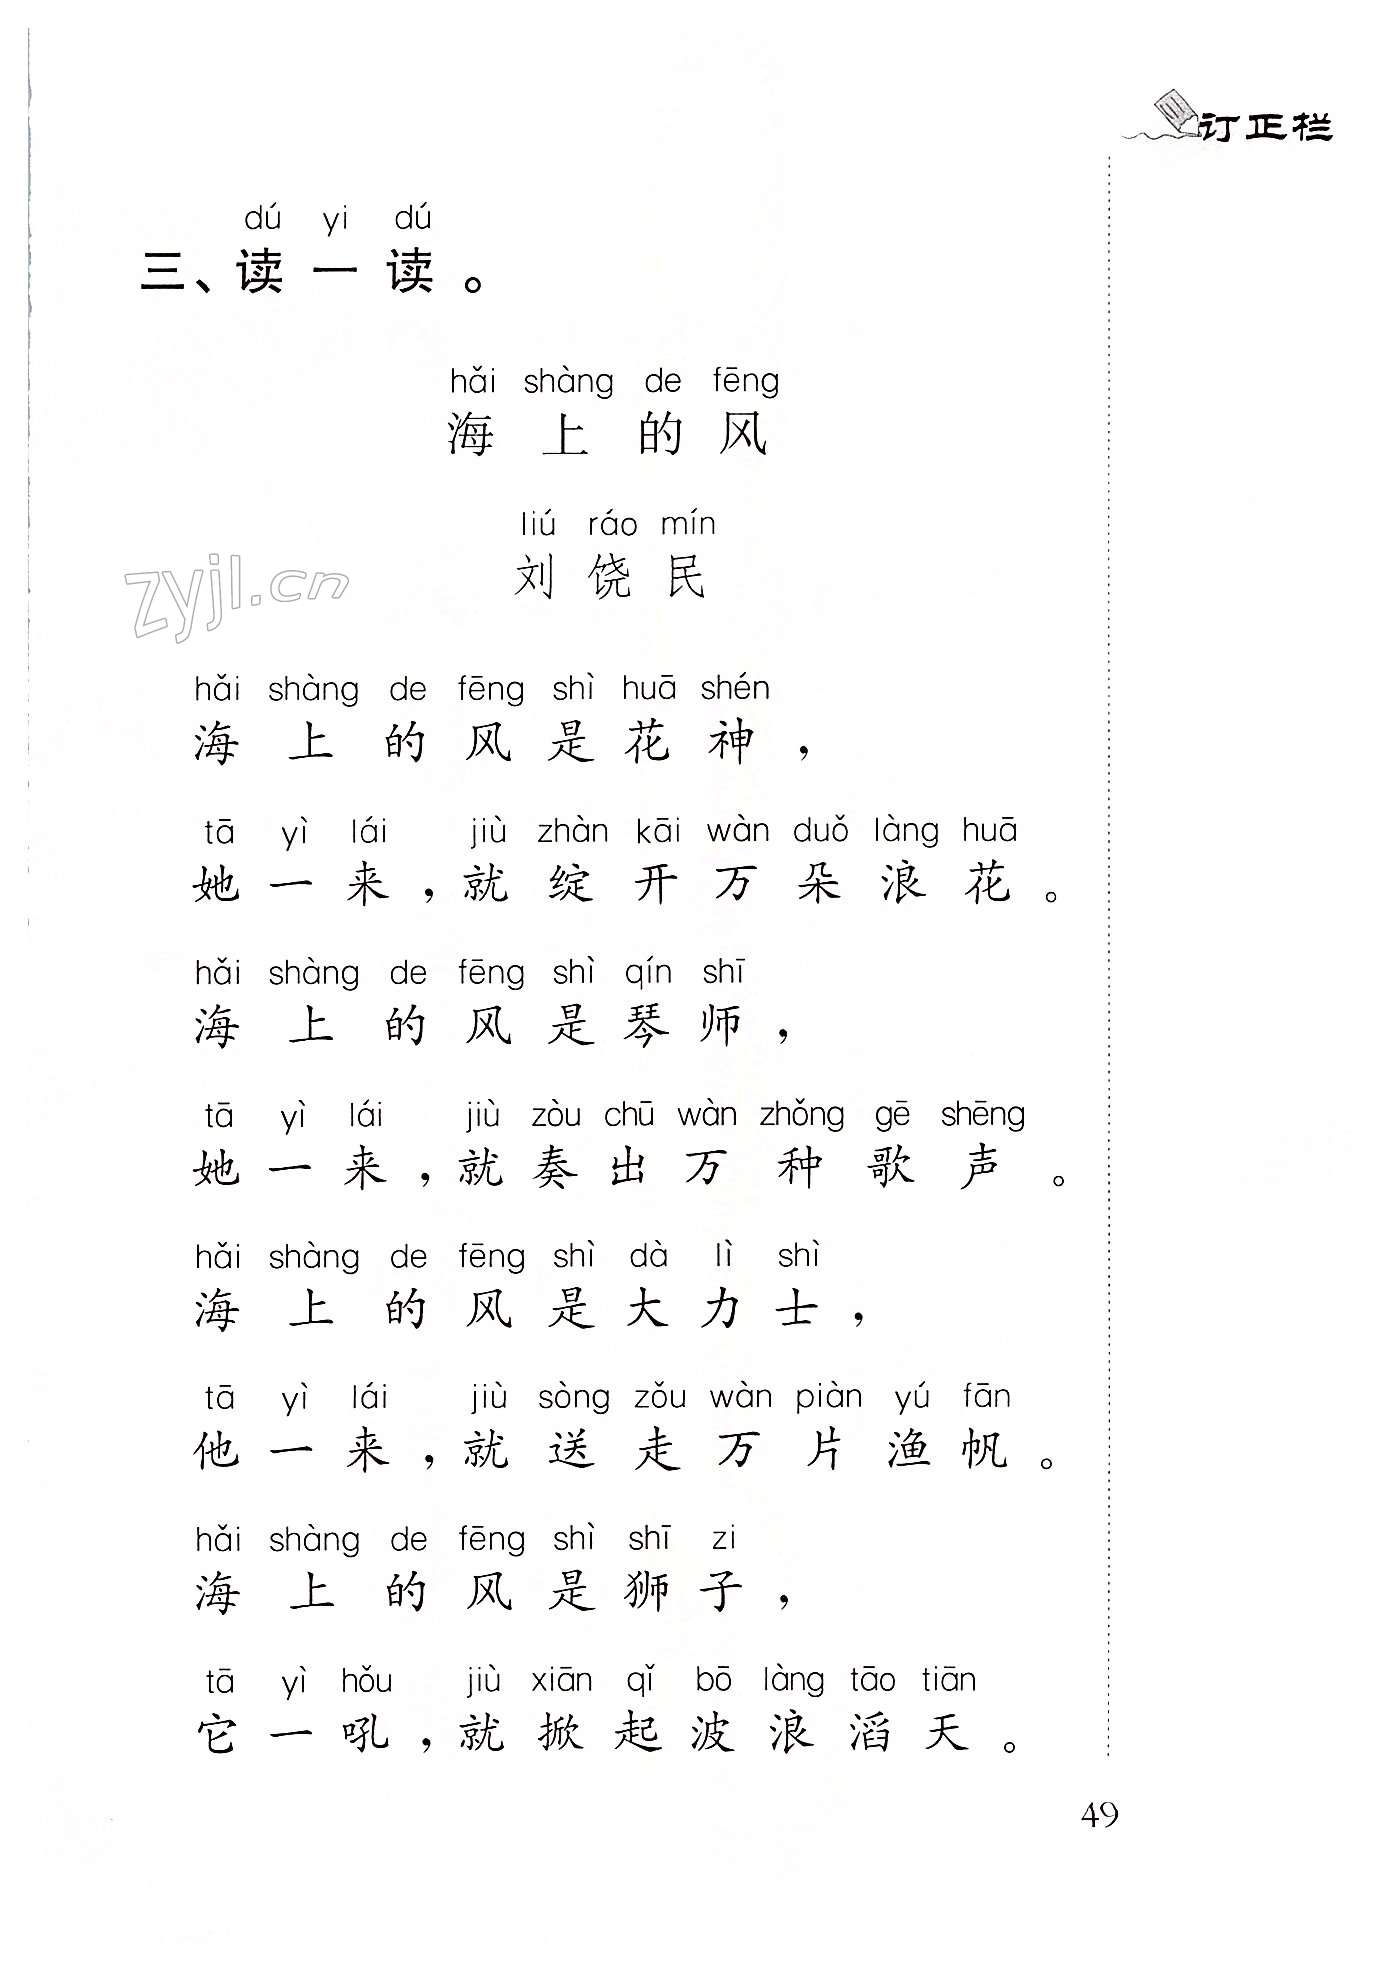 订正栏
dú yi dú
三、读一读。
hǎi shàng de fēng
海上的风
liú ráo mín
刘饶民
zyjl.cn
hǎi shàng de fēng shì huā shén
海上的风是花神，
tā yì lái jiù zhàn kāi wàn duǒ làng huā
她一来，就绽开万朵浪花。
hǎi shàng de fēng shì qín shī
海上的风是琴师，
tā yì lái jiù zòu chū wàn zhǒng gē shēng
她一来，就奏出万种歌声。
hǎi shàng de fēng shì dà lì shì
海上的风是大力士，
tā yì lái jiù sòng zǒu wàn piàn yú fān
他一来，就送走万片渔帆。
hǎi shàng de fēng shì shī zi
海上的风是狮子，
tā yì hǒu jiù xiān qǐ bō làng tāo tiān
它一吼，就掀起波浪滔天。
49